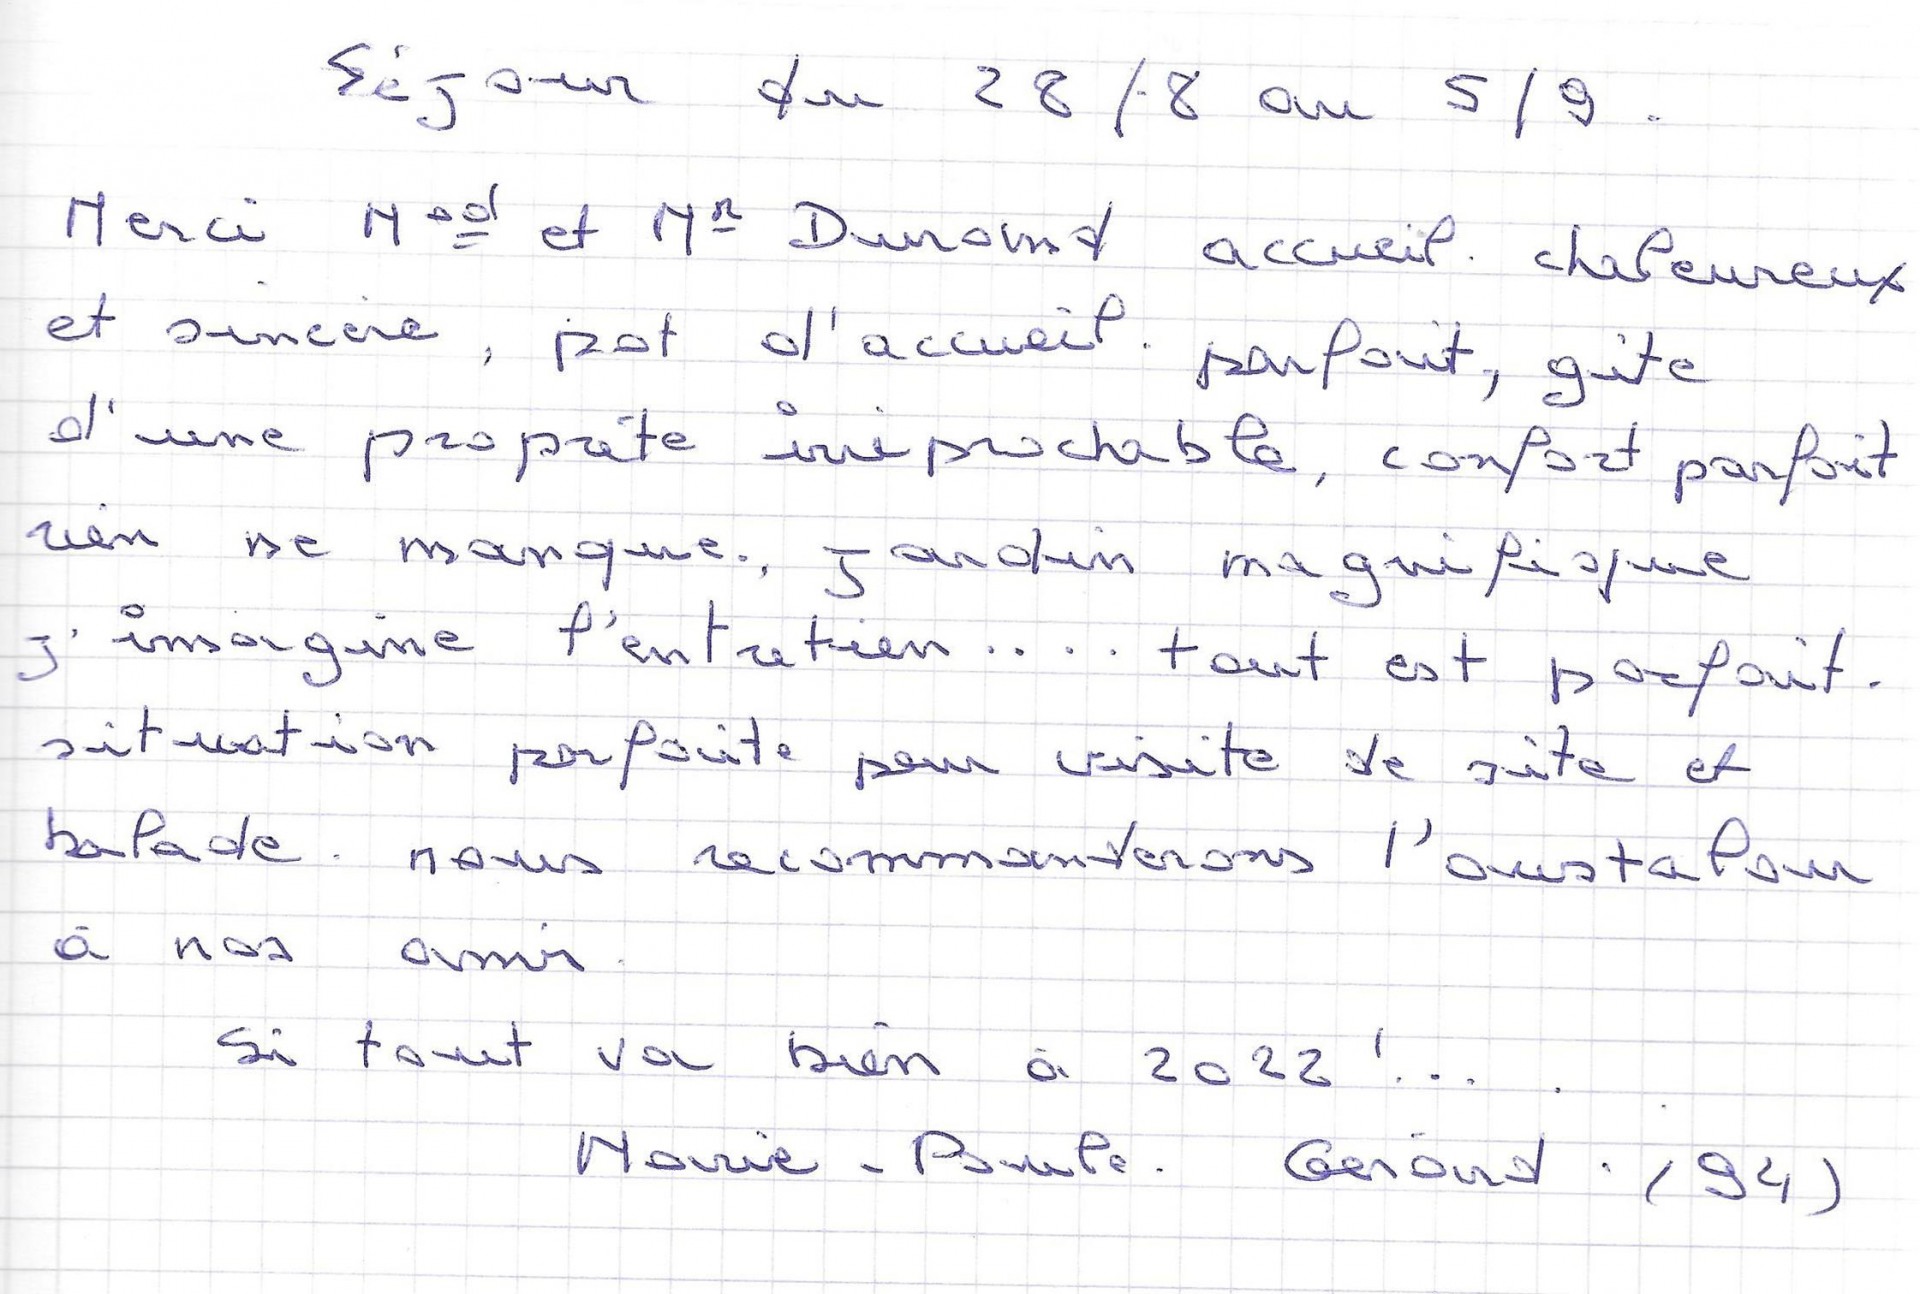 Séjour du 28/8 au 5/9.
Merci Mad et Mr Durand accueil chaleureux
et sincère, pot d'accueil parfait, gite
d'une propreté iréprochable, confort parfait
rien ne manque, jardin magnifique
j'imagine l'entretien.... tout est parfait.
situation parfaite pour visite de site et
balade. nous recommanderons l'oustalou
à nos amis.
Si tout va bien à 2022!...
Marie-Paule. Gérard. (94)